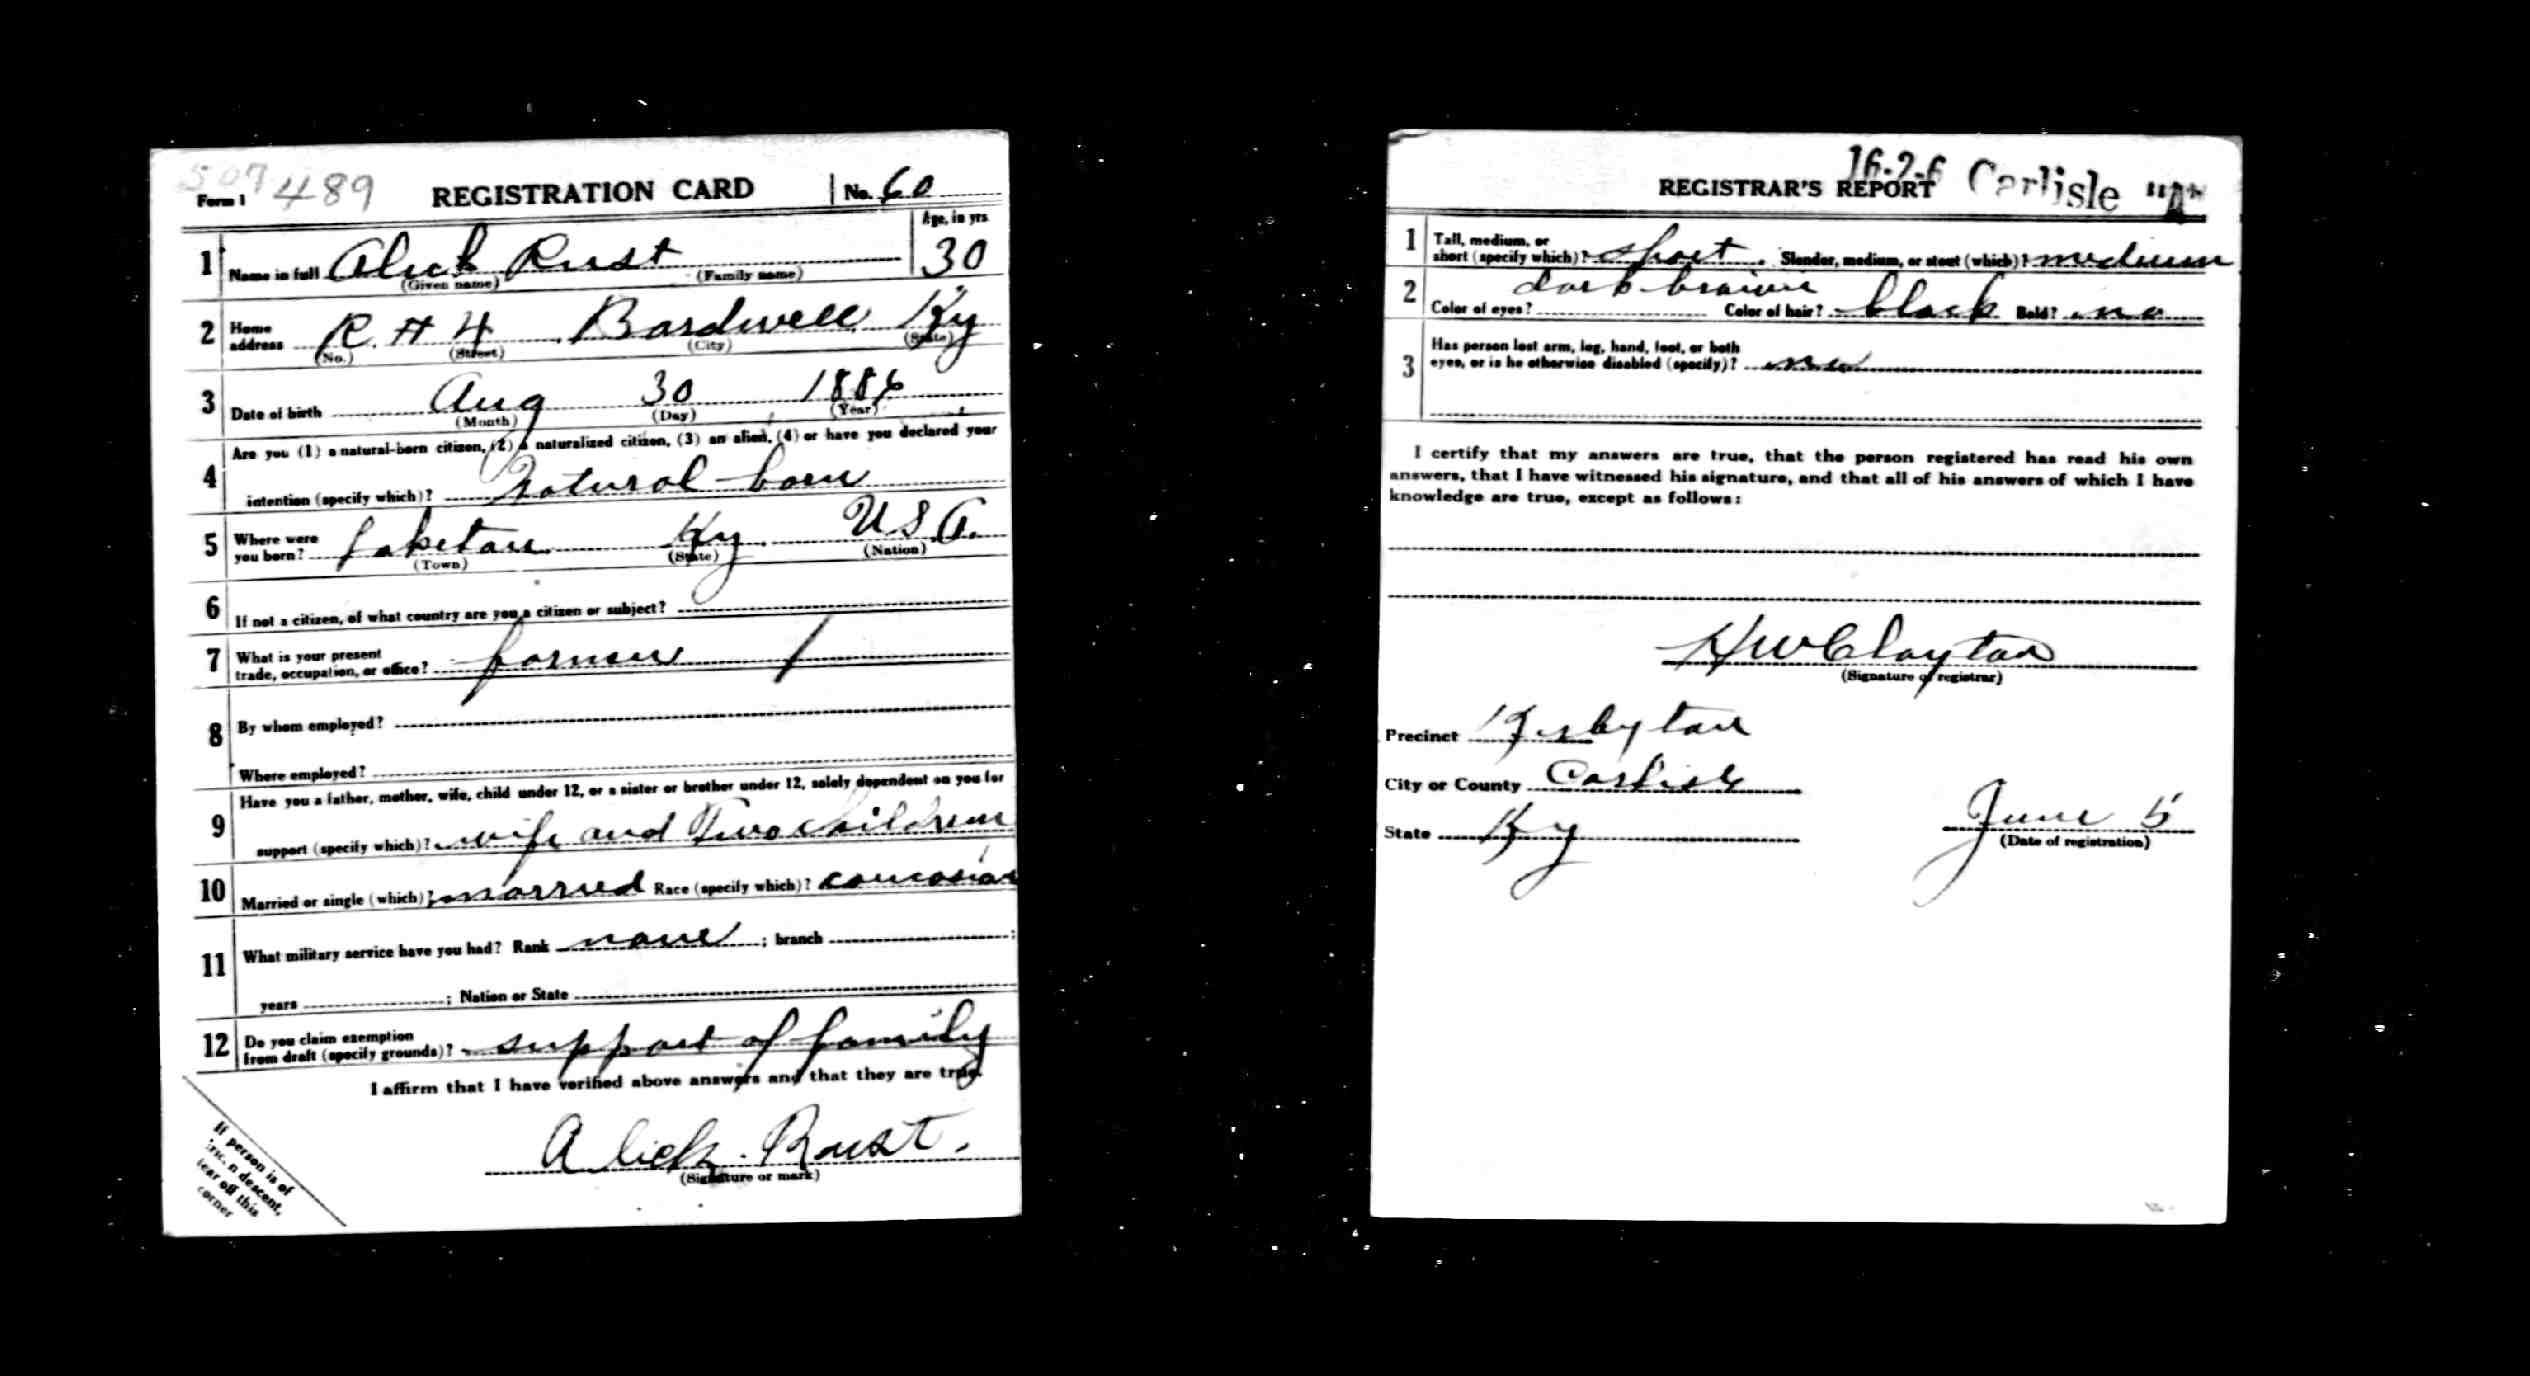 507 489
Form 1 REGISTRATION CARD No. 60
Age, in yrs
1 Name in full Alick Rust 30
(Given name) (Family name)
2 Home address R. # 4 Bardwell Ky
(No.) (Street) (City) (State)
3 Date of birth Aug 30 1886
(Month) (Day) (Year)
Are you (1) a natural-born citizen, (2) a naturalized citizen, (3) an alien, (4) or have you declared your
4 intention (specify which)? Natural born
5 Where were you born? Laketon Ky U S A.
(Town) (State) (Nation)
6 If not a citizen, of what country are you a citizen or subject?
7 What is your present trade, occupation, or office? farmer
8 By whom employed?
Where employed?
Have you a father, mother, wife, child under 12, or a sister or brother under 12, solely dependent on you for
9 support (specify which)? wife and Two children
10 Married or single (which)? married Race (specify which)? caucasian
11 What military service have you had? Rank none ; branch ;
years ; Nation or State
12 Do you claim exemption from draft (specify grounds)? support of family
I affirm that I have verified above answers and that they are true.
Alick Rust.
(Signature or mark)
If person is of
descent,
tear off this
corner
16-2-6 Carlisle "A"
REGISTRAR'S REPORT
1 Tall, medium, or short (specify which)? short Slender, medium, or stout (which)? medium
2 Color of eyes? dark brown Color of hair? black Bald? no
3 Has person lost arm, leg, hand, foot, or both
eyes, or is he otherwise disabled (specify)? no
I certify that my answers are true, that the person registered has read his own
answers, that I have witnessed his signature, and that all of his answers of which I have
knowledge are true, except as follows:
H W Clayton
(Signature of registrar)
Precinct
City or County Carlisle
State Ky June 5
(Date of registration)